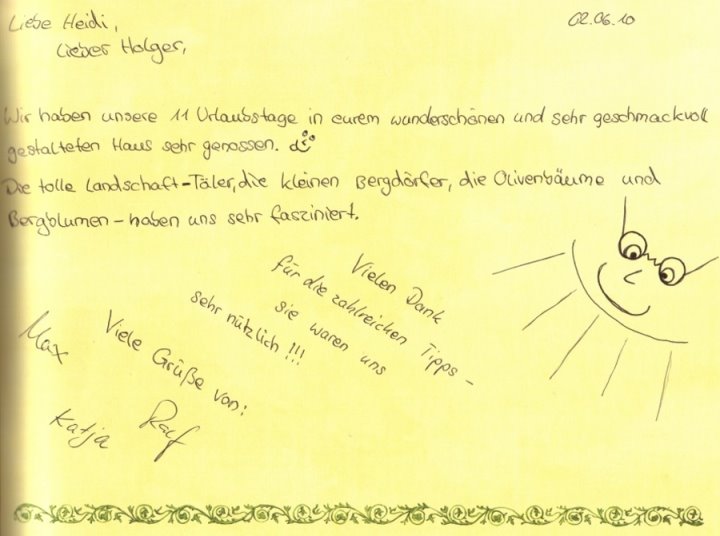 Liebe Heidi, 02.06.10
Lieber Holger,
Wir haben unsere 11 Urlaubstage in eurem wunderschönen und sehr geschmackvoll
gestalteten Haus sehr genossen.
Die tolle Landschaft-Täler, die kleinen Bergdörfer, die Olivenbäume und
Bergblumen – haben uns sehr fasziniert.
Vielen Dank
für die zahlreichen Tipps –
sie waren uns
sehr nützlich!!!
Viele Grüße von:
Max
Katja
Ralf